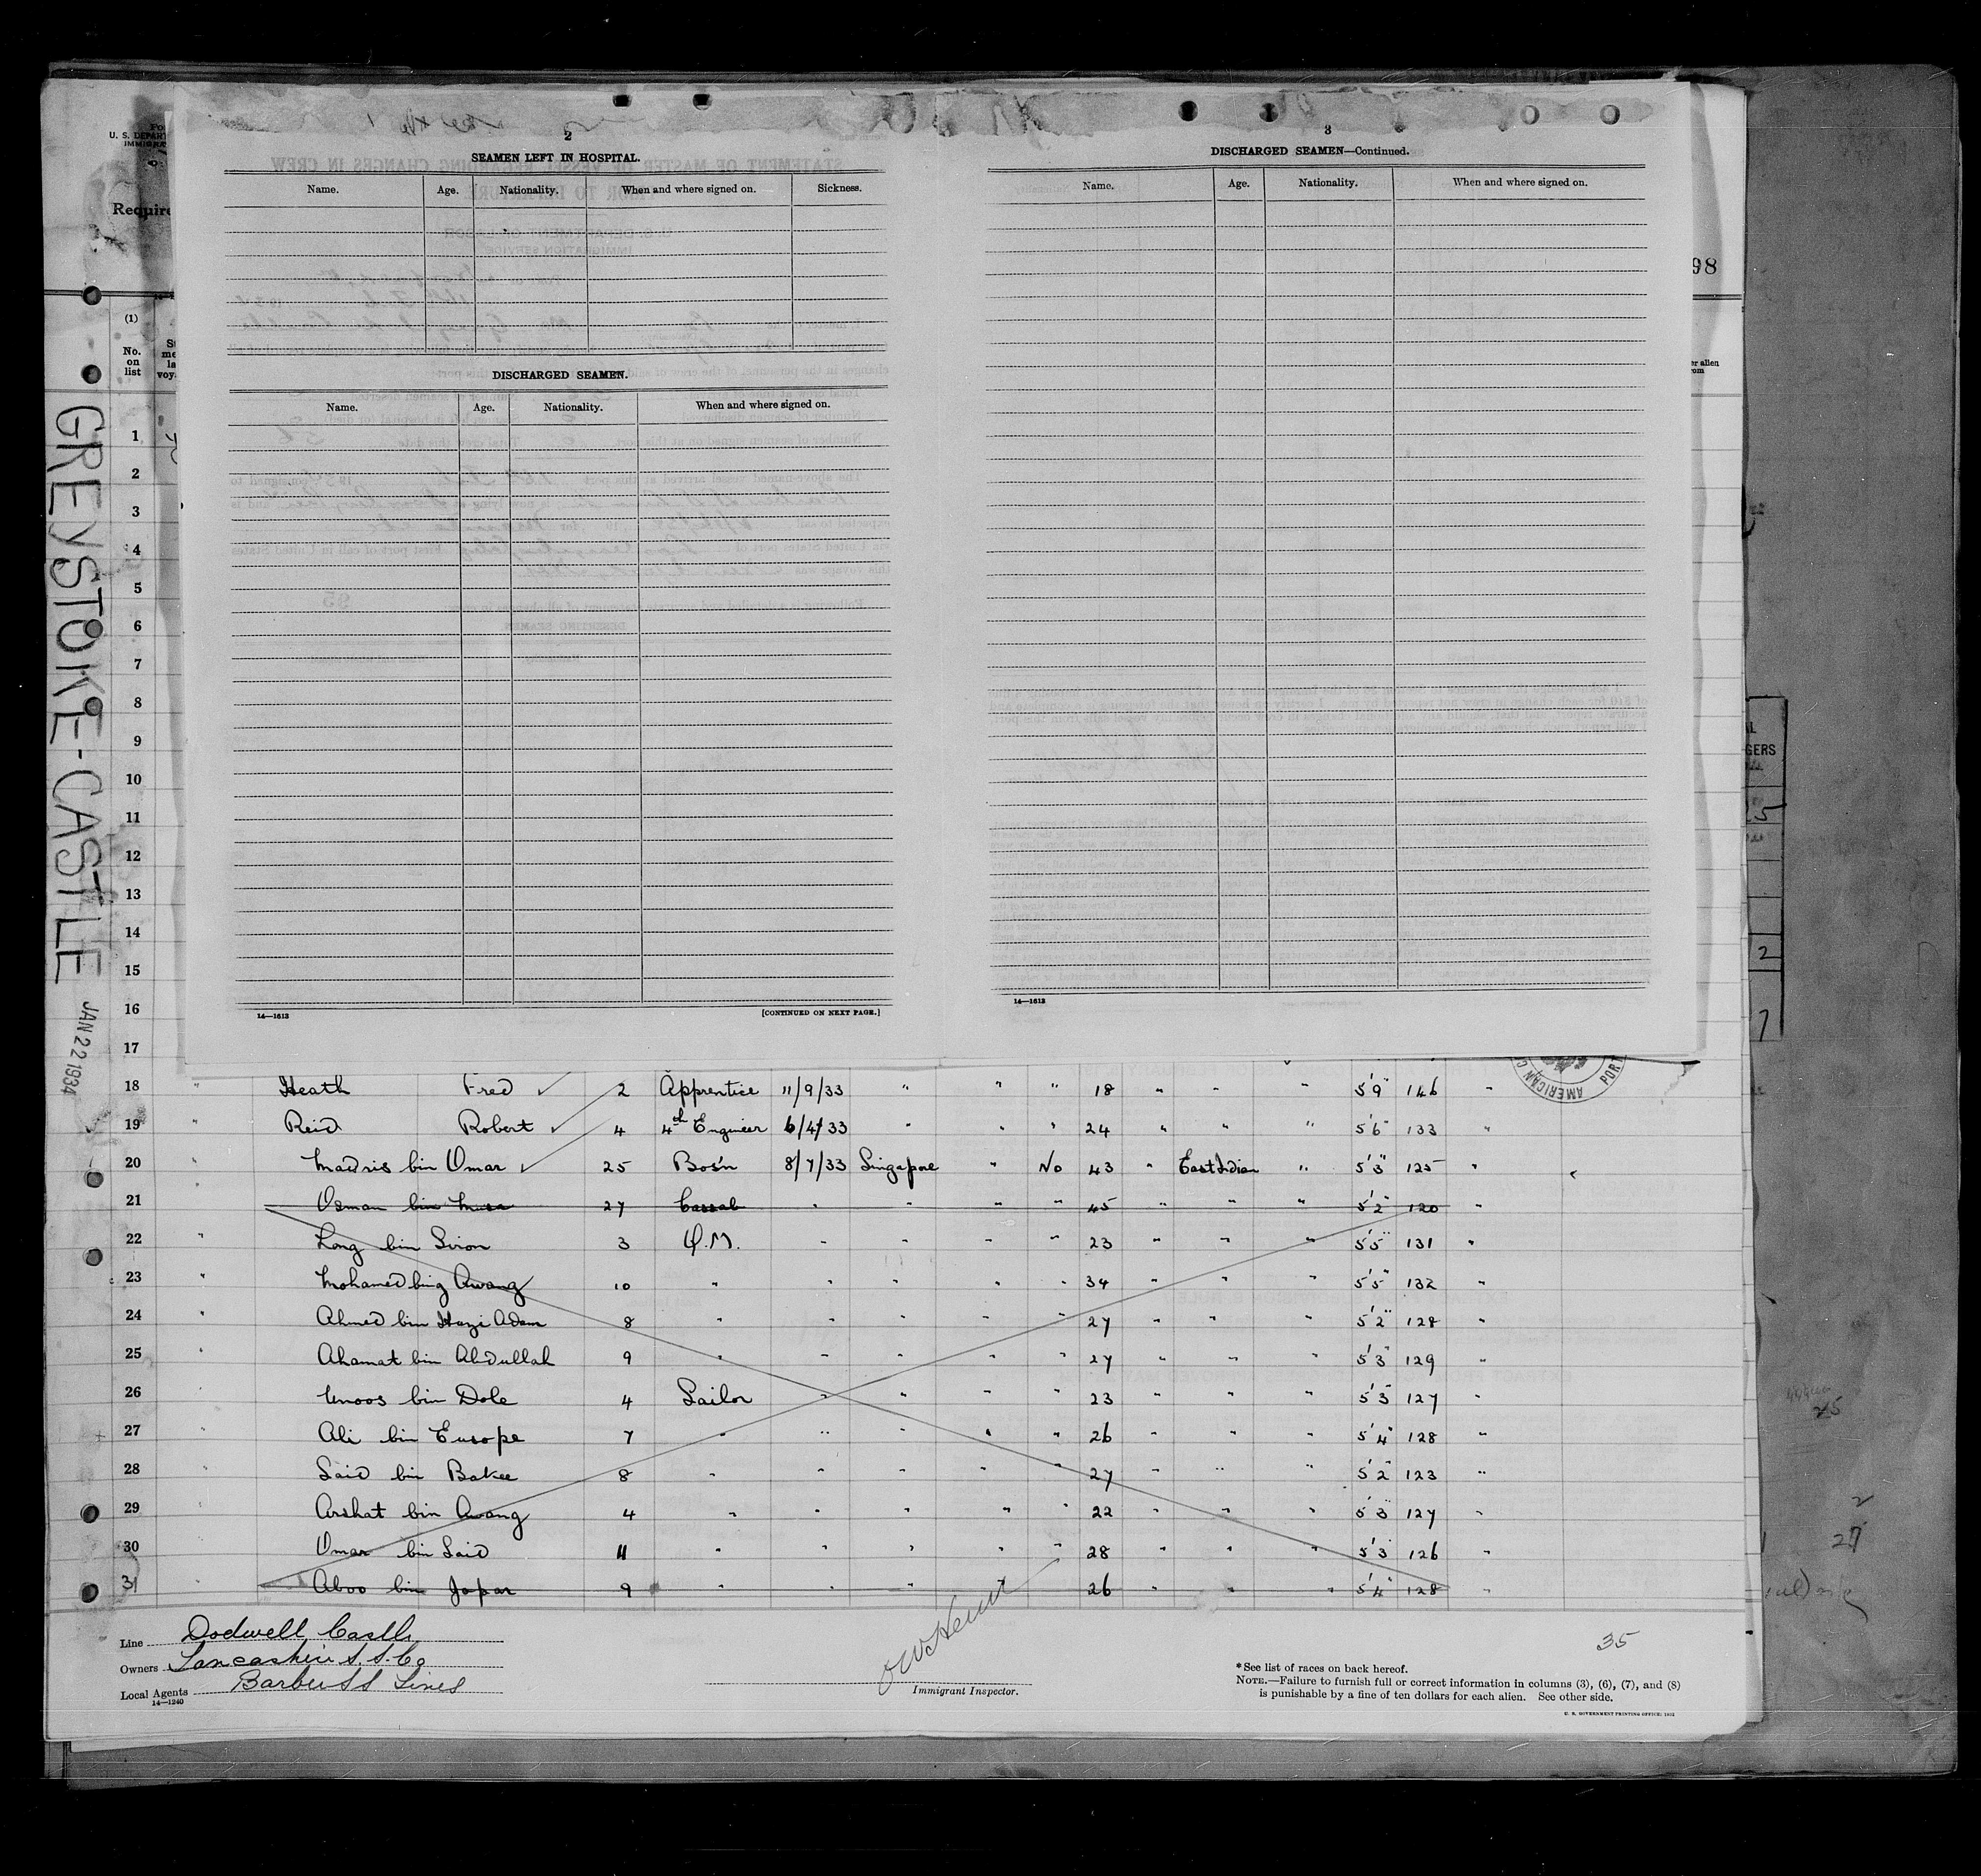 2
SEAMEN LEFT IN HOSPITAL.
Name. Age. Nationality. When and where signed on. Sickness.
DISCHARGED SEAMEN.
Name. Age. Nationality. When and where signed on.
14—1613 [CONTINUED ON NEXT PAGE.]
3
DISCHARGED SEAMEN—Continued.
Name. Age. Nationality. When and where signed on.
14—1613
U. S. DEPART
IMMIGRA
Require
98
(1)
No. on list
er alien
GREYSTOKE-CASTLE
JAN 22 1934
1
2
3
4
5
6
7
8
9
10
11
12
13
14
15
16
17
18 " Heath Fred ✓ 2 Apprentice 11/9/33 " " " 18 " " " 5'9" 146 "
19 " Reid Robert ✓ 4 4th Engineer 6/4/33 " " " 24 " " " 5'6" 133 "
20 " Madris bin Omar ✓ 25 Bos'n 8/7/33 Singapore " No 43 " East Indian " 5'3" 125 "
21 Osman bin Musa 27 Cassab " " " " 45 " " " 5'2" 120 "
22 " Long bin Siron 3 Q.M. " " " " 23 " " " 5'5" 131 "
23 " Mohamed bing Awang 10 " " " " " 34 " " " 5'5" 132 "
24 " Ahmed bin Hazi Adam 8 " " " " " 27 " " " 5'2" 128 "
25 " Ahamat bin Abdullah 9 " " " " " 27 " " " 5'3" 129 "
26 " Unoos bin Dole 4 Sailor " " " " 23 " " " 5'3" 127 "
27 " Ali bin Eusope 7 " " " " " 26 " " " 5'4" 128 "
28 " Said bin Bakee 8 " " " " " 27 " " " 5'2" 123 "
29 " Arshat bin Awang 4 " " " " " 22 " " " 5'3" 127 "
30 " Omar bin Said 11 " " " " " 28 " " " 5'3" 126 "
31 " Aboo bin Japar 9 " " " " " 26 " " " 5'4" 128 "
AMERICAN PORT
Line Dodwell Castle
Owners Lancashire S.S. Co
Local Agents Barber SS Lines
14—1240
Immigrant Inspector.
35
*See list of races on back hereof.
NOTE.—Failure to furnish full or correct information in columns (3), (6), (7), and (8)
is punishable by a fine of ten dollars for each alien. See other side.
U. S. GOVERNMENT PRINTING OFFICE: 1932
GERS
5
2
7